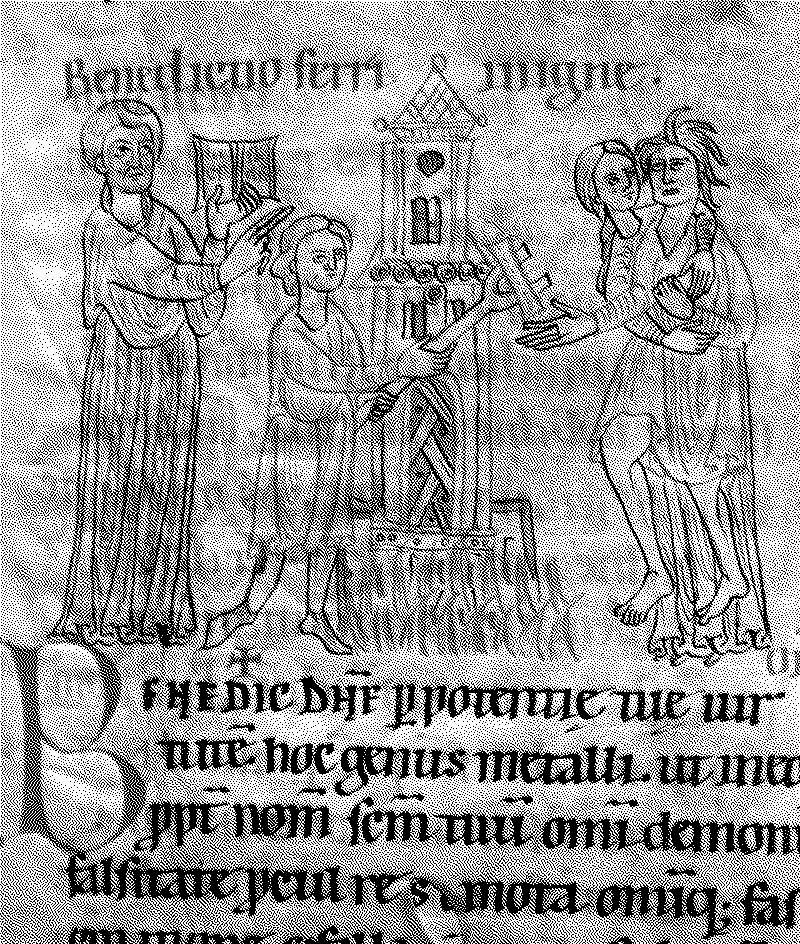 Benedictio ferri in igne.
BENEDIC DNE p potentie tue uir
tute hoc genus metalli. ut in eo
ppt nom scm tuu omi demonu
falsitate pcul remota omiq; fal